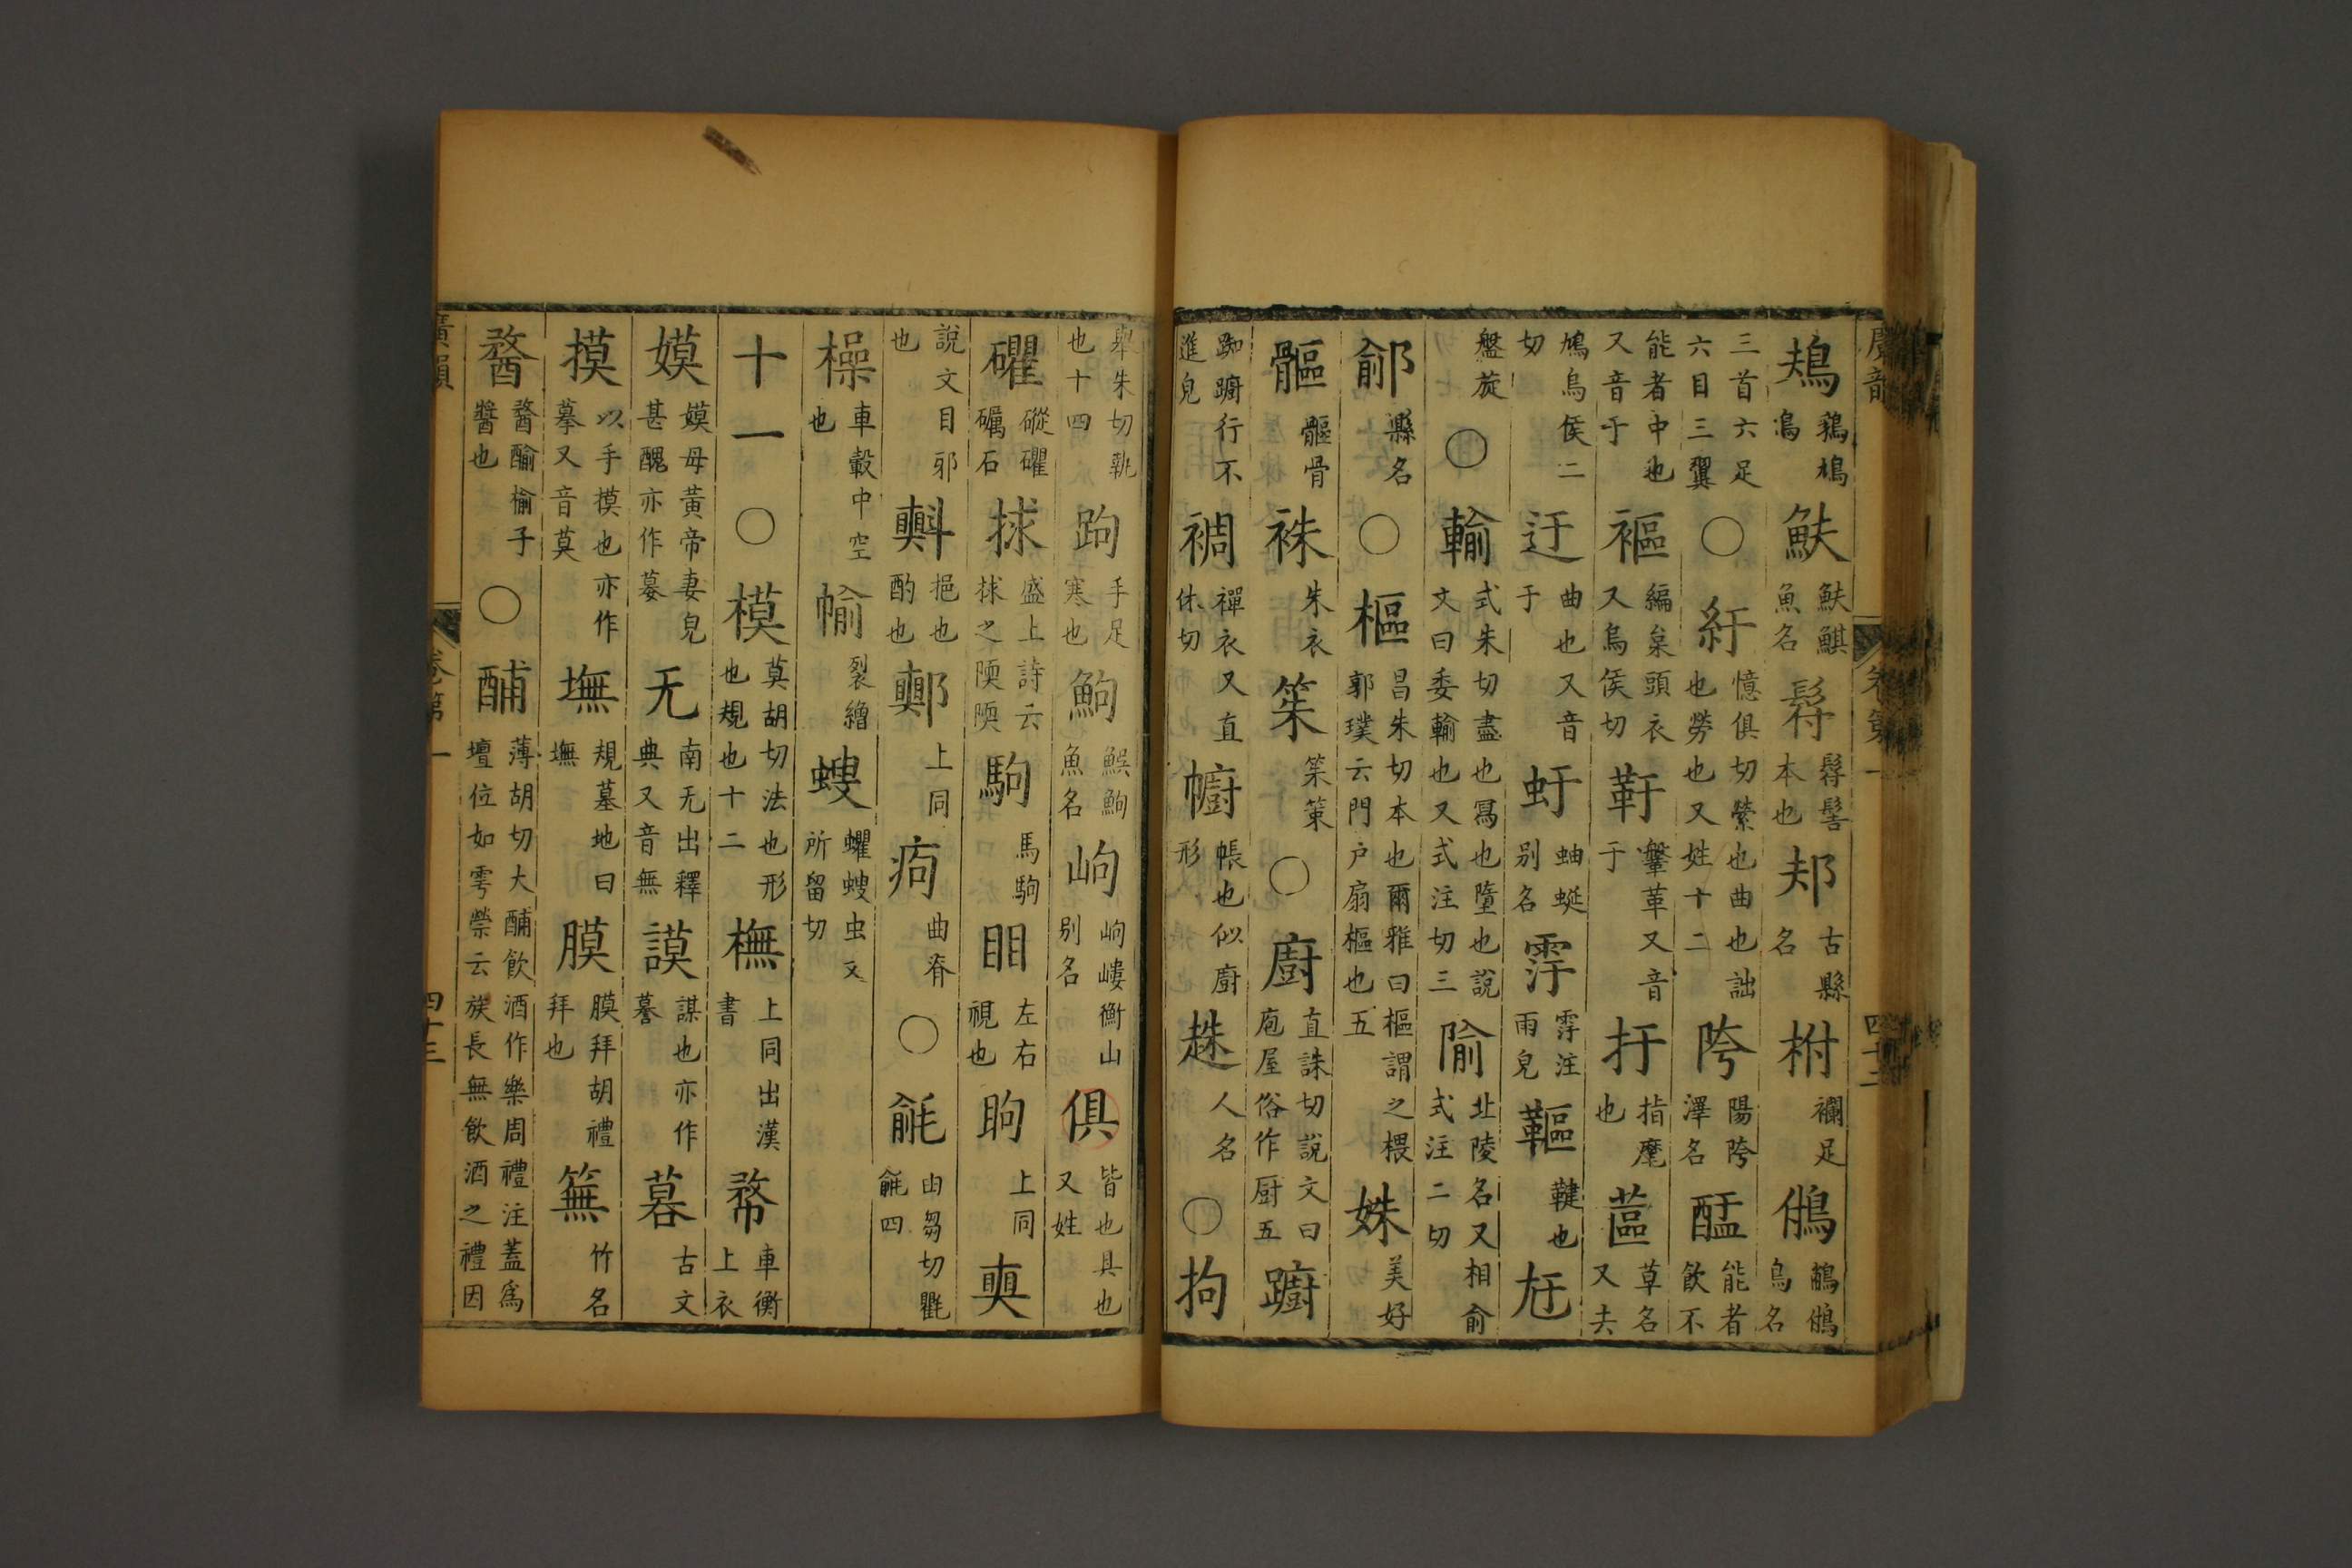 廣韻 卷第一 四十二
鳺 鷄鳩鳥 魼 魼鯕魚名 䯱 髟髻本也 邞 古縣名 柎 襴足 䳕 鶺䳕鳥名
三首六足六目三翼 ○ 紆 憶俱切縈也曲也詘也勞也又姓十二 陓 陽陓澤名 醧 能者飲不
能者中也又音于 䙔 編枲頭衣又烏侯切 䩒 鞶革又音于 扜 指麾也 蓲 草名又去
鳩烏侯二切 迂 曲也又音于 虶 蚰蜒别名 雩 雩注雨皃 䡱 鞬也 尪
盤旋 ○ 輸 式朱切盡也寫也墮也說文曰委輸也又式注切三 隃 北陵名又相俞式注二切
鄃 縣名 ○ 樞 昌朱切本也爾雅曰樞謂之椳郭璞云門戶扇樞也五 姝 美好
䯫 䯫骨 袾 朱衣 䇡 䇡策 ○ 廚 直誅切說文曰庖屋俗作厨五 躕
踟躕行不進皃 裯 禪衣又直休切 幮 帳也似廚形 趎 人名 ○ 拘
舉朱切執也十四 跔 手足寒也 鮈 鯸鮈魚名 岣 岣嶁衡山别名 俱 皆也具也又姓
礭 䃔礭礪石 捄 盛土詩云捄之陾陾 駒 馬駒 䀠 左右視也 眗 上同 㚙
說文目邪也 㪺 挹也酌也 上同 痀 曲脊 ○ 㲣 山芻切氍㲣四
橾 車轂中空也 㡏 裂繒 螋 蠼螋虫又所留切
十一 ○ 模 莫胡切法也形也規也十二 橅 上同出漢書 㡔 車衡上衣
嫫 嫫母黃帝妻皃甚醜亦作㜈 无 南无出釋典又音無 謨 謀也亦作謩 暮 古文
摸 以手摸也亦作摹又音莫 墲 規墓地曰墲 膜 膜拜胡禮拜也 䉑 竹名
䤅 䤅醶榆子醬也 ○ 酺 薄胡切大酺飲酒作樂周禮注蓋爲壇位如雩禜云族長無飲酒之禮因
廣韻 卷第一 四十三